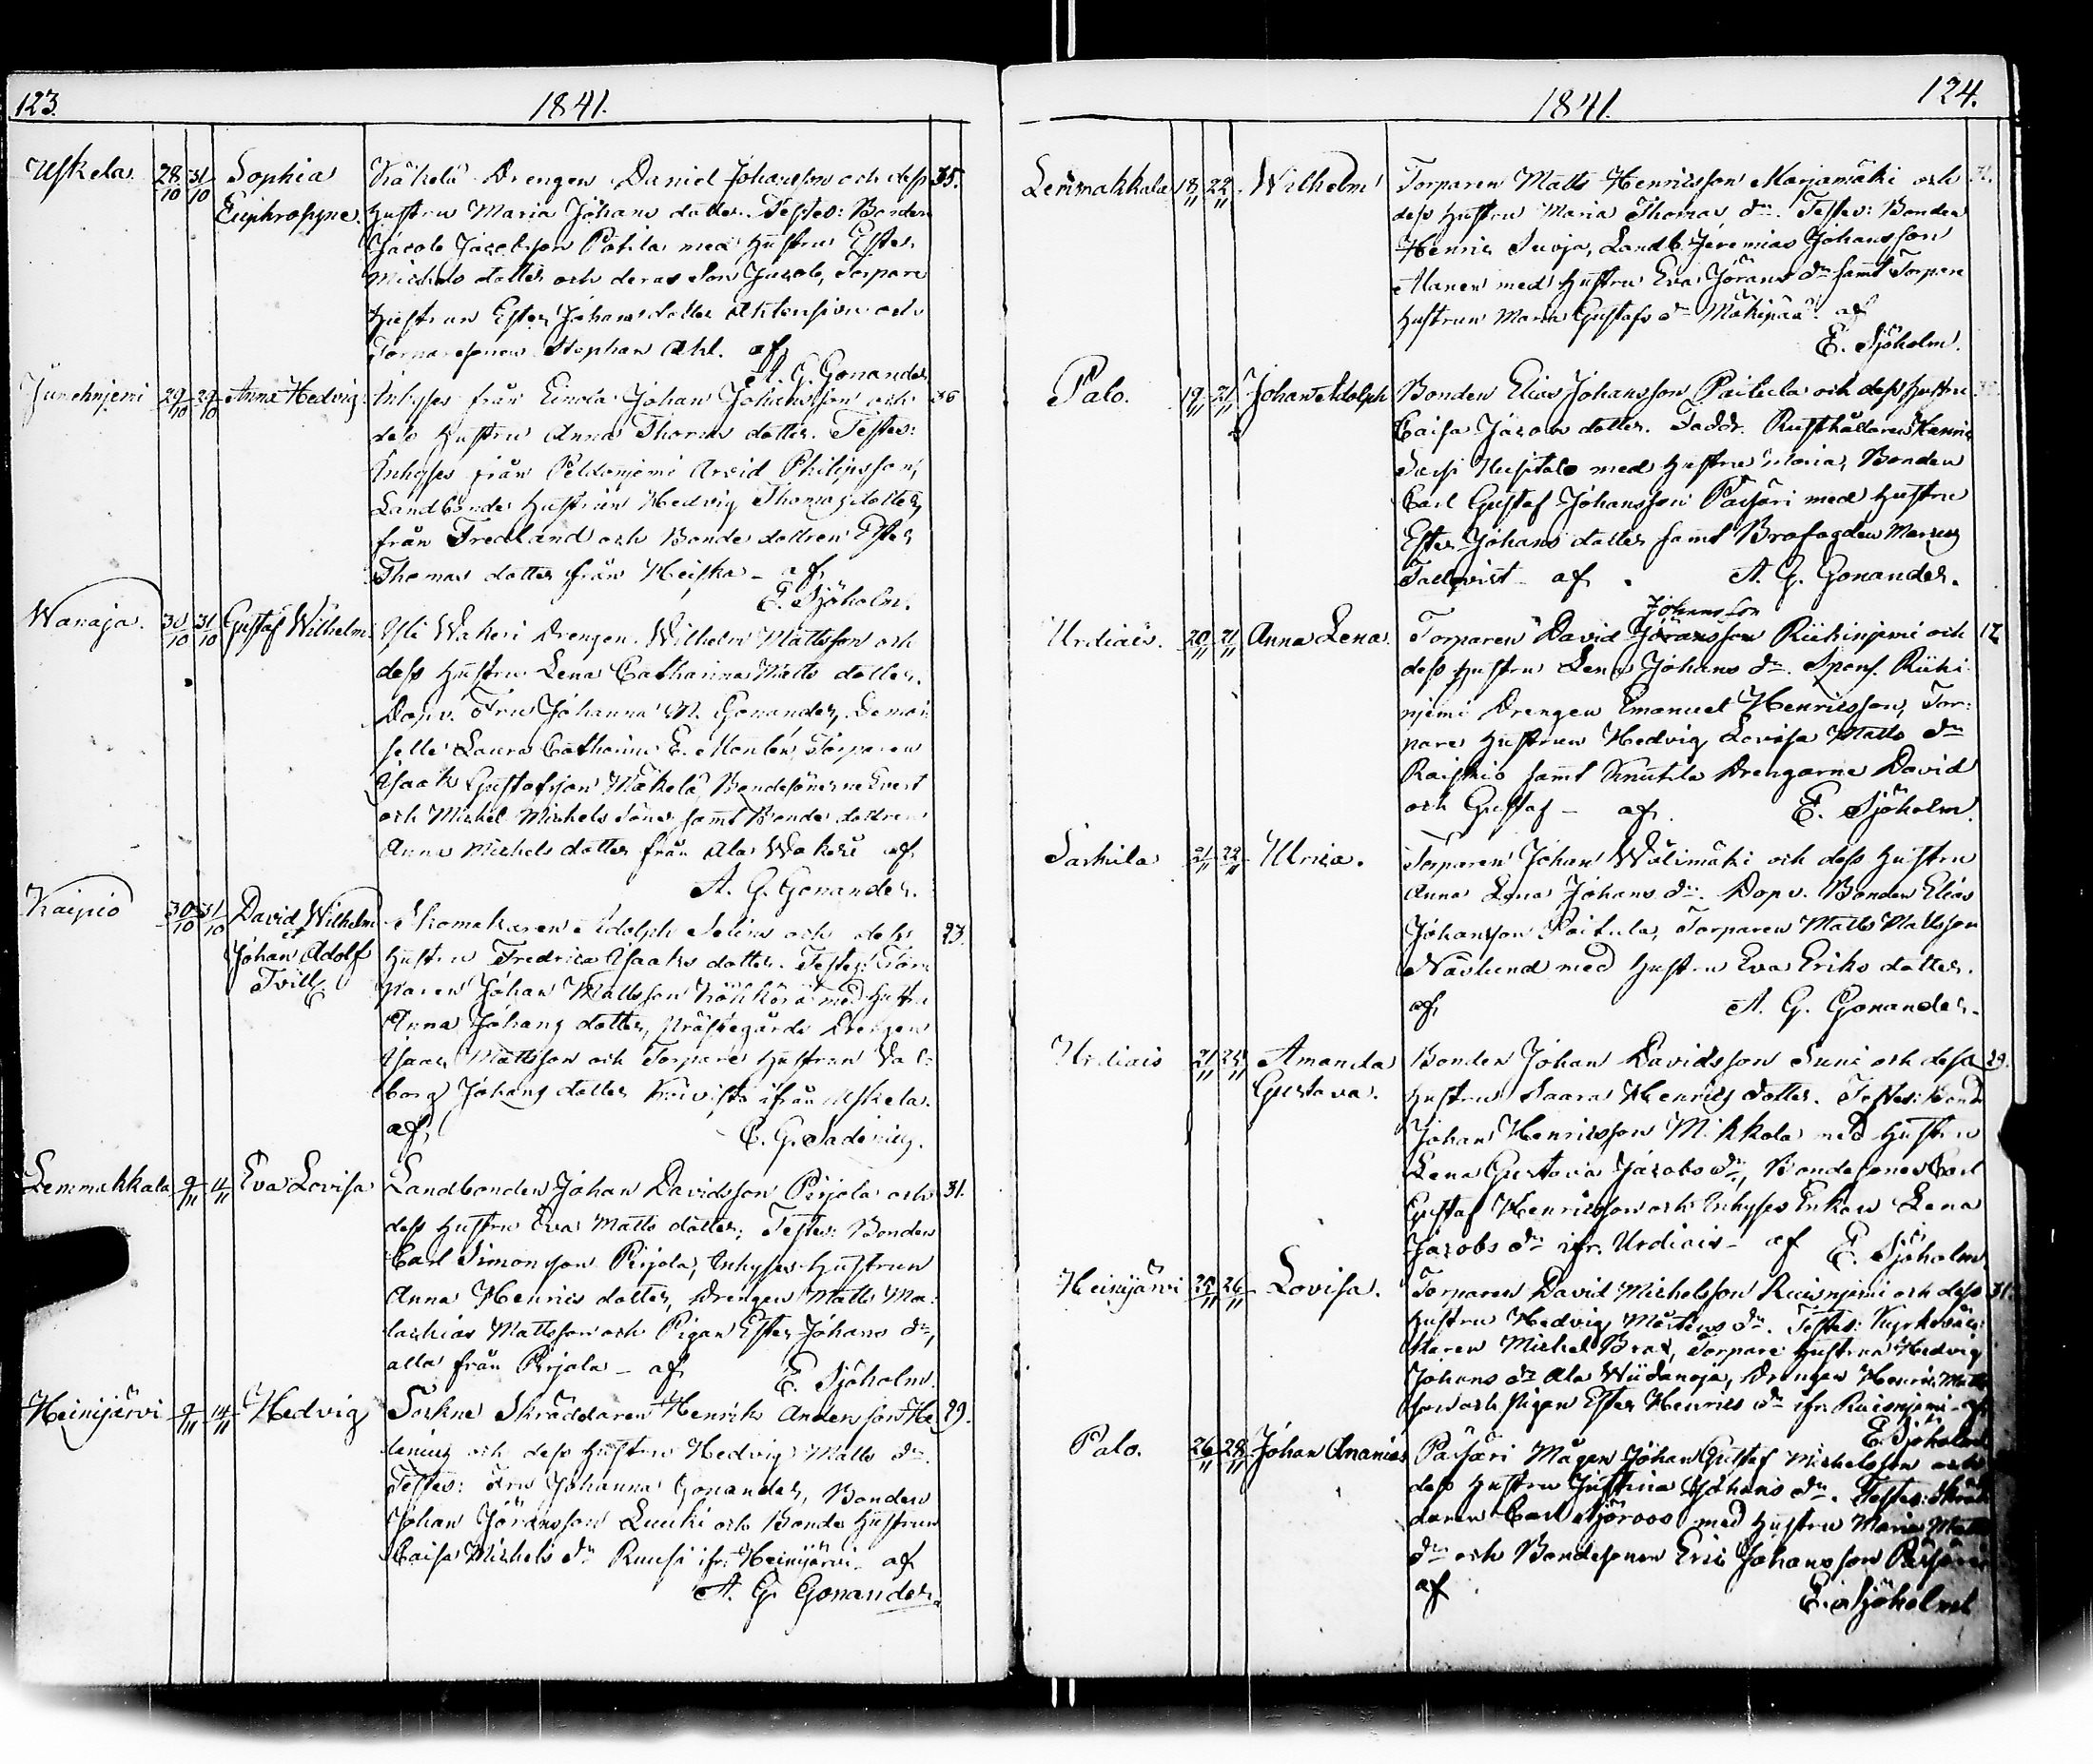 123. 1841.
Uskela. 28/10 31/10 Sophia Käkelä Drengen Daniel Johansson och dess 35.
Euphrosyne. Hustru Maria Johans dotter. Testes: Bonden
Jacob Jacobsson Potila med Hustru Ester
Michels dotter och deras Son Jacob, Torpare
Hustrun Ester Johans dotter och
Stephan Ahl. af
A. G. Gonander
29/10 29/10 Anna Hedvig. Inhyses från Einola Johan Johansson och 36
dess Hustru Anna Thomas dotter. Testes:
Inhyses från Peldonjemi Arvid Philipsson,
Landbonde Hustrun Hedvig Thomas dotter
från Fredland och Bonde dottren Ester
Thomas dotter från Heiska - af
E. Sjöholm.
Wanaja. 30/10 31/10 Gustaf Wilhelm. Yli Wakeri Drengen Wilhelm Mattsson och
dess Hustru Lena Catharina Matts dotter.
Dopv. Fru Johanna M. Gonander, Demoi-
selle Laura Catharina E. Montén, Torparen
Isaak Gustafsson Mäkelä, Bondesönerne Evert
och Michel Michels Söner samt Bonde dottren
Anna Michels dotter från Ala Wakeri af
A. G. Gonander.
Kaipio 30/10 31/10 David Wilhelm Skomakaren Adolph Selin och dess 23.
et
Johan Adolf Hustru Fredrica Isaaks dotter. Testes: Tor-
Tvill. paren Johan Mattsson med Hustru
Anna Johans dotter, Prästegårds Drengen
Isaac Mattsson och Torpare Hustrun Val-
borg Johans dotter Koivisto ifrån Uskela.
af C. G. Sadenius.
Lemmakkala 9/11 14/11 Eva Lovisa Landbonden Johan Davidsson Pirjola och 31.
dess Hustru Eva Matts dotter; Testes: Bonden
Carl Simonsson Pirjola, Inhyses Hustrun
Anna Henrics dotter, Drengen Matts Ma-
lachias Mattsson och Pigan Ester Johans dr,
alla från Pirjola - af E. Sjöholm.
Heinijärvi 9/11 14/11 Hedvig Sockne Skräddaren Henrik Andersson He- 29.
lenius och dess Hustru Hedvig Matts dr.
Testes: Fru Johanna Gonander, Bonden
Johan Jöransson Luuki och Bonde Hustrun
Caisa Michels dr Ruusi ifr. Heinijärvi - af
A. G. Gonander.
1841. 124.
Lemmakkala 18/11 22/11 Wilhelm Torparen Matts Henricsson Marjamäki och
dess Hustru Maria Thomas dr. Testes: Bonden
Henric Suoja, Landb. Jeremias Johansson
Alanen med Hustru Eva Jörans dr samt Torpare
Hustrun Maria Gustafs dr Mäkipää. af
E. Sjöholm.
Palo. 19/11 21/11 Johan Adolph Bonden Elias Johansson Paitula och dess Hustru
Caisa Jacobs dotter. Faddr. Rusthållaren Henric
med Hustru Maria, Bonden
Carl Gustaf Johansson Passari med Hustru
Ester Johans dotter samt Brofogden Marcus
Tallqvist - af A. G. Gonander.
Johansson
Urdiais. 20/11 21/11 Anna Lena. Torparen David Jöransson Riikinjemi och 12
dess Hustru Lena Johans dr. Spons. Riiki-
njemi Drengen Emanuel Henricsson, Tor-
pare Hustrun Hedvig Lovisa Matts dr
Raiskio samt Knutila Drengarne David
och Gustaf - af E. Sjöholm.
Sarkila 21/11 22/11 Ulrica. Torparen Johan Wälimäki och dess Hustru
Anna Lena Johans dr. Dopv. Bonden Elias
Johansson Paitula, Torparen Matts Mattsson
Näslund med Hustru Eva Eriks dotter.
af A. G. Gonander.
Urdiais 21/11 Amanda Bonden Johan Davidsson Suni och dess 29.
Gustava. Hustru Saara Henrics dotter. Testes: Bond.
Johan Henricsson Mikkola med Hustru
Lena Gustava Jacobs dr, Bondesonen Carl
Gustaf Henricsson och Inhyses Enkan Lena
Jacobs dr ifr. Urdiais - af E. Sjöholm
Heinijärvi 25/11 26/11 Lovisa. Torparen David Michelsson Ruisnjemi och dess 31.
Hustru Hedvig Mårtens dr. Testes:
Michel Brax, Torpare Hustrun Hedvig
Johans dr Ala Wiidanoja, Drengen Henric Matts-
son och Pigan Ester Henrics dr ifr. Ruisnjemi - af
E. Sjöholm
Palo. 26/11 28/11 Johan Ananias Passari Mågen Johan Gustaf Michelsson och
dess Hustru Justina Johans dr. Testes: Skräd-
daren Carl Sjöroos med Hustru Maria Matts
dr och Bondesonen Eric Johansson Passari
af E. Sjöholm